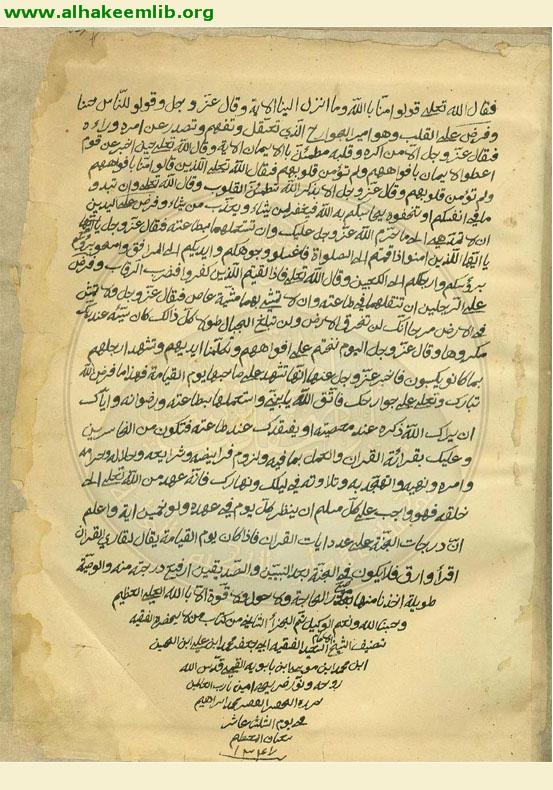 www.alhakeemlib.org
فقال الله تعالى قولوا امنا بالله وما انزل الينا الاية وقال عز وجل وقولوا للناس حسنا
وفرض على القلب وهو امير الجوارح الذي به تعقل وتفهم وتصدر عن امره ورايه
فقال عز وجل الا من اكره وقلبه مطمئن بالايمان الاية وقال الله تعالى حين اخبر عن قوم
اعطوا الايمان بافواههم ولم تؤمن قلوبهم فقال الله تعالى الذين قالوا امنا بافواههم
ولم تؤمن قلوبهم وقال عز وجل الا بذكر الله تطمئن القلوب وقال الله تعالى وان تبدوا
ما في انفسكم او تخفوه يحاسبكم به الله فيغفر لمن يشاء ويعذب من يشاء وفرض على اليدين
ان لا تمدهما الى ما حرم الله عز وجل عليك وان تستعملهما بطاعته فقال عز وجل
يا ايها الذين امنوا اذا قمتم الى الصلواة فاغسلوا وجوهكم وايديكم الى المرافق وامسحوا
برؤسكم وارجلكم الى الكعبين وقال الله تعالى فاذا لقيتم الذين كفروا فضرب الرقاب وفرض
على الرجلين ان تنقلهما في طاعته وان لا تمشي بهما مشية عاص فقال عز وجل ولا تمش
في الارض مرحا انك لن تخرق الارض ولن تبلغ الجبال طولا كل ذلك كان سيئه عند ربك
مكروها وقال عز وجل اليوم نختم على افواههم وتكلمنا ايديهم وتشهد ارجلهم
بما كانوا يكسبون فاخبر عز وجل عنها انها تشهد على صاحبها يوم القيامة فهذا ما فرض الله
تبارك وتعالى على جوارحك فاتق الله يا بني واستعملها بطاعته ورضوانه واياك
ان يراك الله ذكره عند معصيته او يفقدك عند طاعته فتكون من الخاسرين
وعليك بقرائة القران والعمل بما فيه ولزوم فرايضه وشرايعه وحلاله وحرامه
وامره ونهيه والتهجد به وتلاوته في ليلك ونهارك فانه عهد من الله تعالى الى
خلقه فهو واجب على كل مسلم ان ينظر كل يوم في عهده ولو خمسين اية واعلم
ان درجات الجنة على عدد ايات القران فاذا كان يوم القيامة يقال لقاري القران
اقرأ وارق فلا يكون في الجنة بعد النبيين والصديقين ارفع درجة منه والوصية
طويلة اخذنا منها موضع الحاجة ولا حول ولا قوة الا بالله العلي العظيم
وحسبنا الله ونعم الوكيل تم الجزأ الثاني من كتاب من لا يحضره الفقيه
تصنيف الشيخ السعيد الفقيه ابي جعفر محمد ابن علي ابن الحسين
ابن موسى ابن بابويه القمي قدس الله
روحه ونور ضريحه امين يا رب العالمين
محمد ابراهيم
في يوم الثلث عاشر
شعبان المعظم